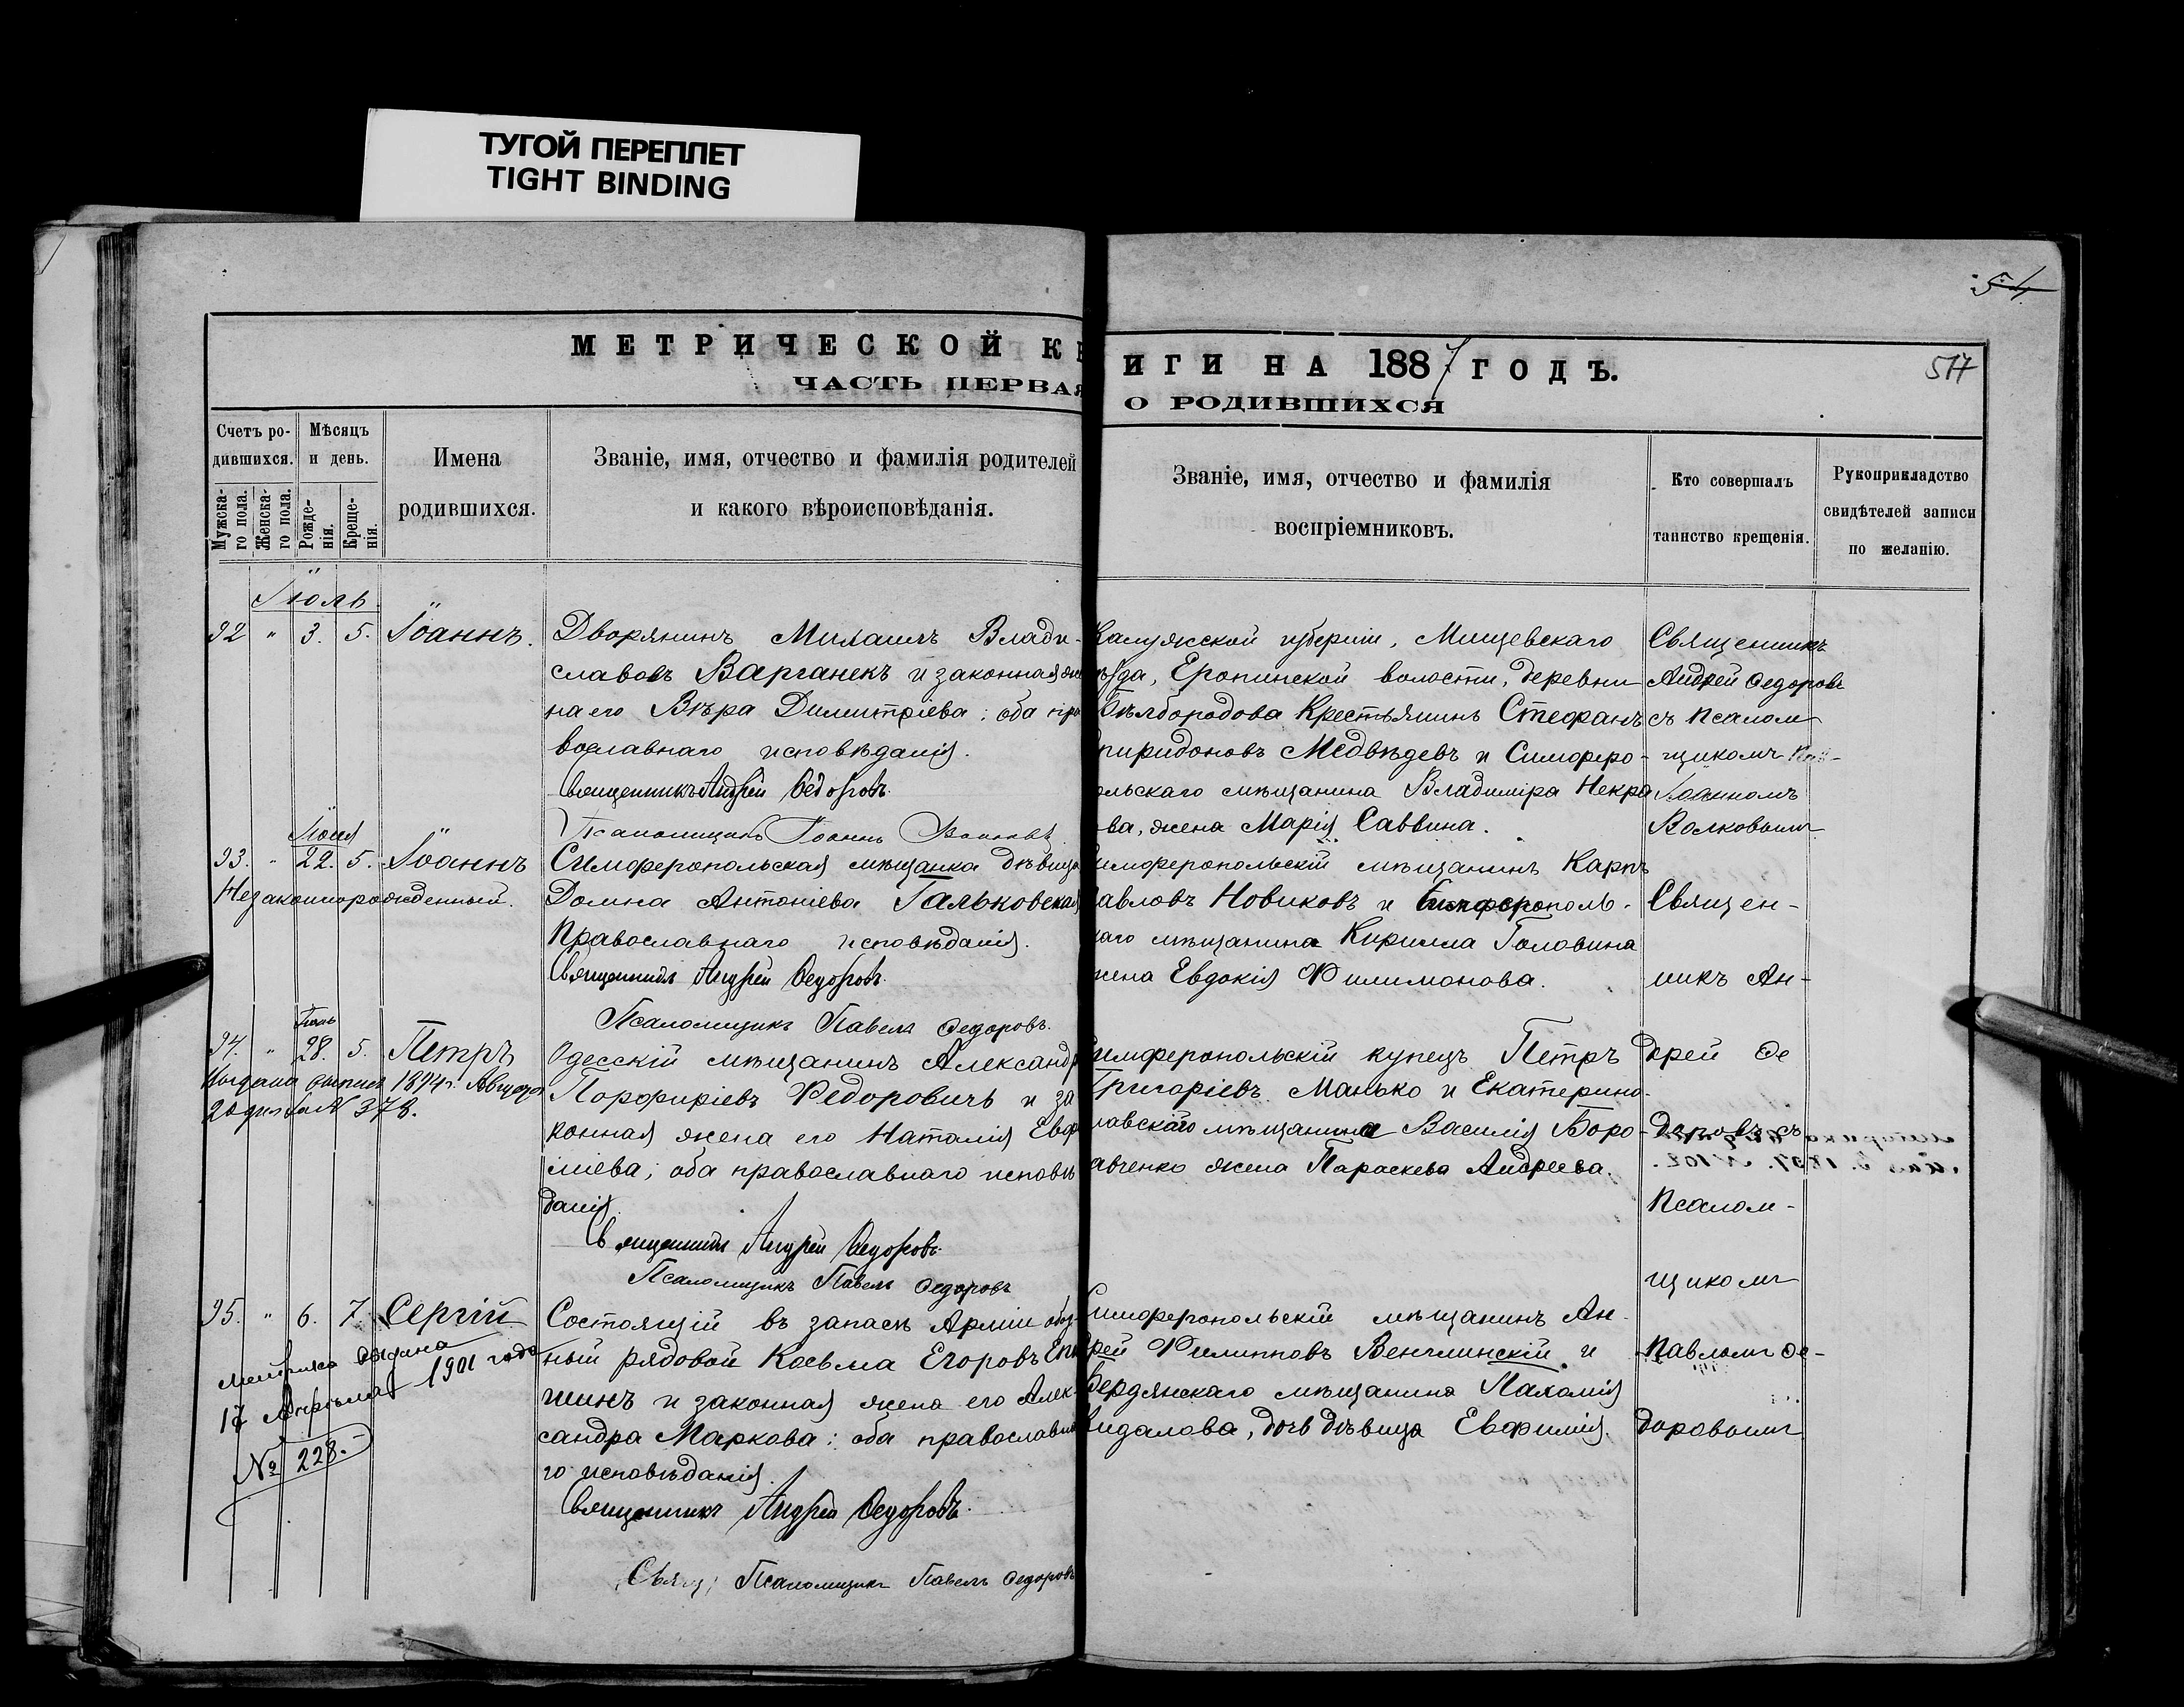 ТУГОЙ ПЕРЕПЛЕТ
TIGHT BINDING
54
517
МЕТРИЧЕСКОЙ КНИГИ НА 1887 ГОДЪ.
ЧАСТЬ ПЕРВАЯ О РОДИВШИХСЯ
Счетъ ро-
дившихся.
Мужска-
го пола.
Женска-
го пола.
Мѣсяцъ
и день.
Рожде-
нія.
Креще-
нія.
Имена
родившихся.
Званіе, имя, отчество и фамилія родителей
и какого вѣроисповѣданія.
Званіе, имя, отчество и фамилія
воспріемниковъ.
Кто совершалъ
таинство крещенія.
Рукоприкладство
свидѣтелей записи
по желанію.
Іюль
92 " 3. 5. Іоаннъ.
Дворянинъ Михаилъ Влади-
славовъ Варганекъ и законная же
на его Вѣра Димитріева; оба пра
вославнаго исповѣданія.
Священникъ Андрей Ѳедоровъ.
Псаломщикъ Іоаннъ Волковъ
Калужской губерніи, Мищевскаго
ѣзда, Еропинской волости, деревни
Бѣлбородова Крестьянинъ Стефанъ
пиридоновъ Медвѣдевъ и Симферо-
ольскаго мѣщанина Владиміра Некра
ова, жена Марія Саввина.
Священникъ
Андрей Ѳедоровъ
съ псалом
щикомъ
Іоанномъ
Волковымъ
Іюня
93. " 22. 5. Іоаннъ
Незаконнорожденный.
Симферопольская мѣщанка дѣвица
Домна Антоніева Гальковская
Православнаго исповѣданія.
Священникъ Андрей Ѳедоровъ.
Псаломщикъ Павелъ Ѳедоровъ.
имферопольскій мѣщанинъ Карпъ
авловъ Новиковъ и Симферополь-
каго мѣщанина Кирилла Головина
жена Евдокія Филимонова.
Священ-
никъ Ан-
дрей Ѳе
доровъ съ
Псалом-
щикомъ
Павломъ Ѳе-
доровымъ
94. " 28. 5. Петръ
Выдана выпись 1894 г. Августа
20 дня за № 378.
Одесскій мѣщанинъ Александръ
Порфиріевъ Федоровичъ и за
конная жена его Наталія Евф
иміева; оба православнаго исповѣ
данія.
Священникъ Андрей Ѳедоровъ.
Псаломщикъ Павелъ Ѳедоровъ
имферопольскій купецъ Петръ
Григоріевъ Манько и Екатерино-
лавскаго мѣщанина Василія Боро-
авченко жена Параскева Андреева.
95. " 6. 7. Сергій
Метрика выдана
17 Апрѣля 1901 года
№ 228.
Состоящій въ запасѣ Арміи обоз
ный рядовой Косьма Егоровъ Епи
шинъ и законная жена его Алек-
сандра Маркова; оба православна
го исповѣданія.
Священникъ Андрей Ѳедоровъ.
Псаломщикъ Павелъ Ѳедоровъ
Симферопольскій мѣщанинъ Ан-
дрей Филипповъ Венглинскій и
Бердянскаго мѣщанина Пахомія
идалова, дочь дѣвица Евфимія.